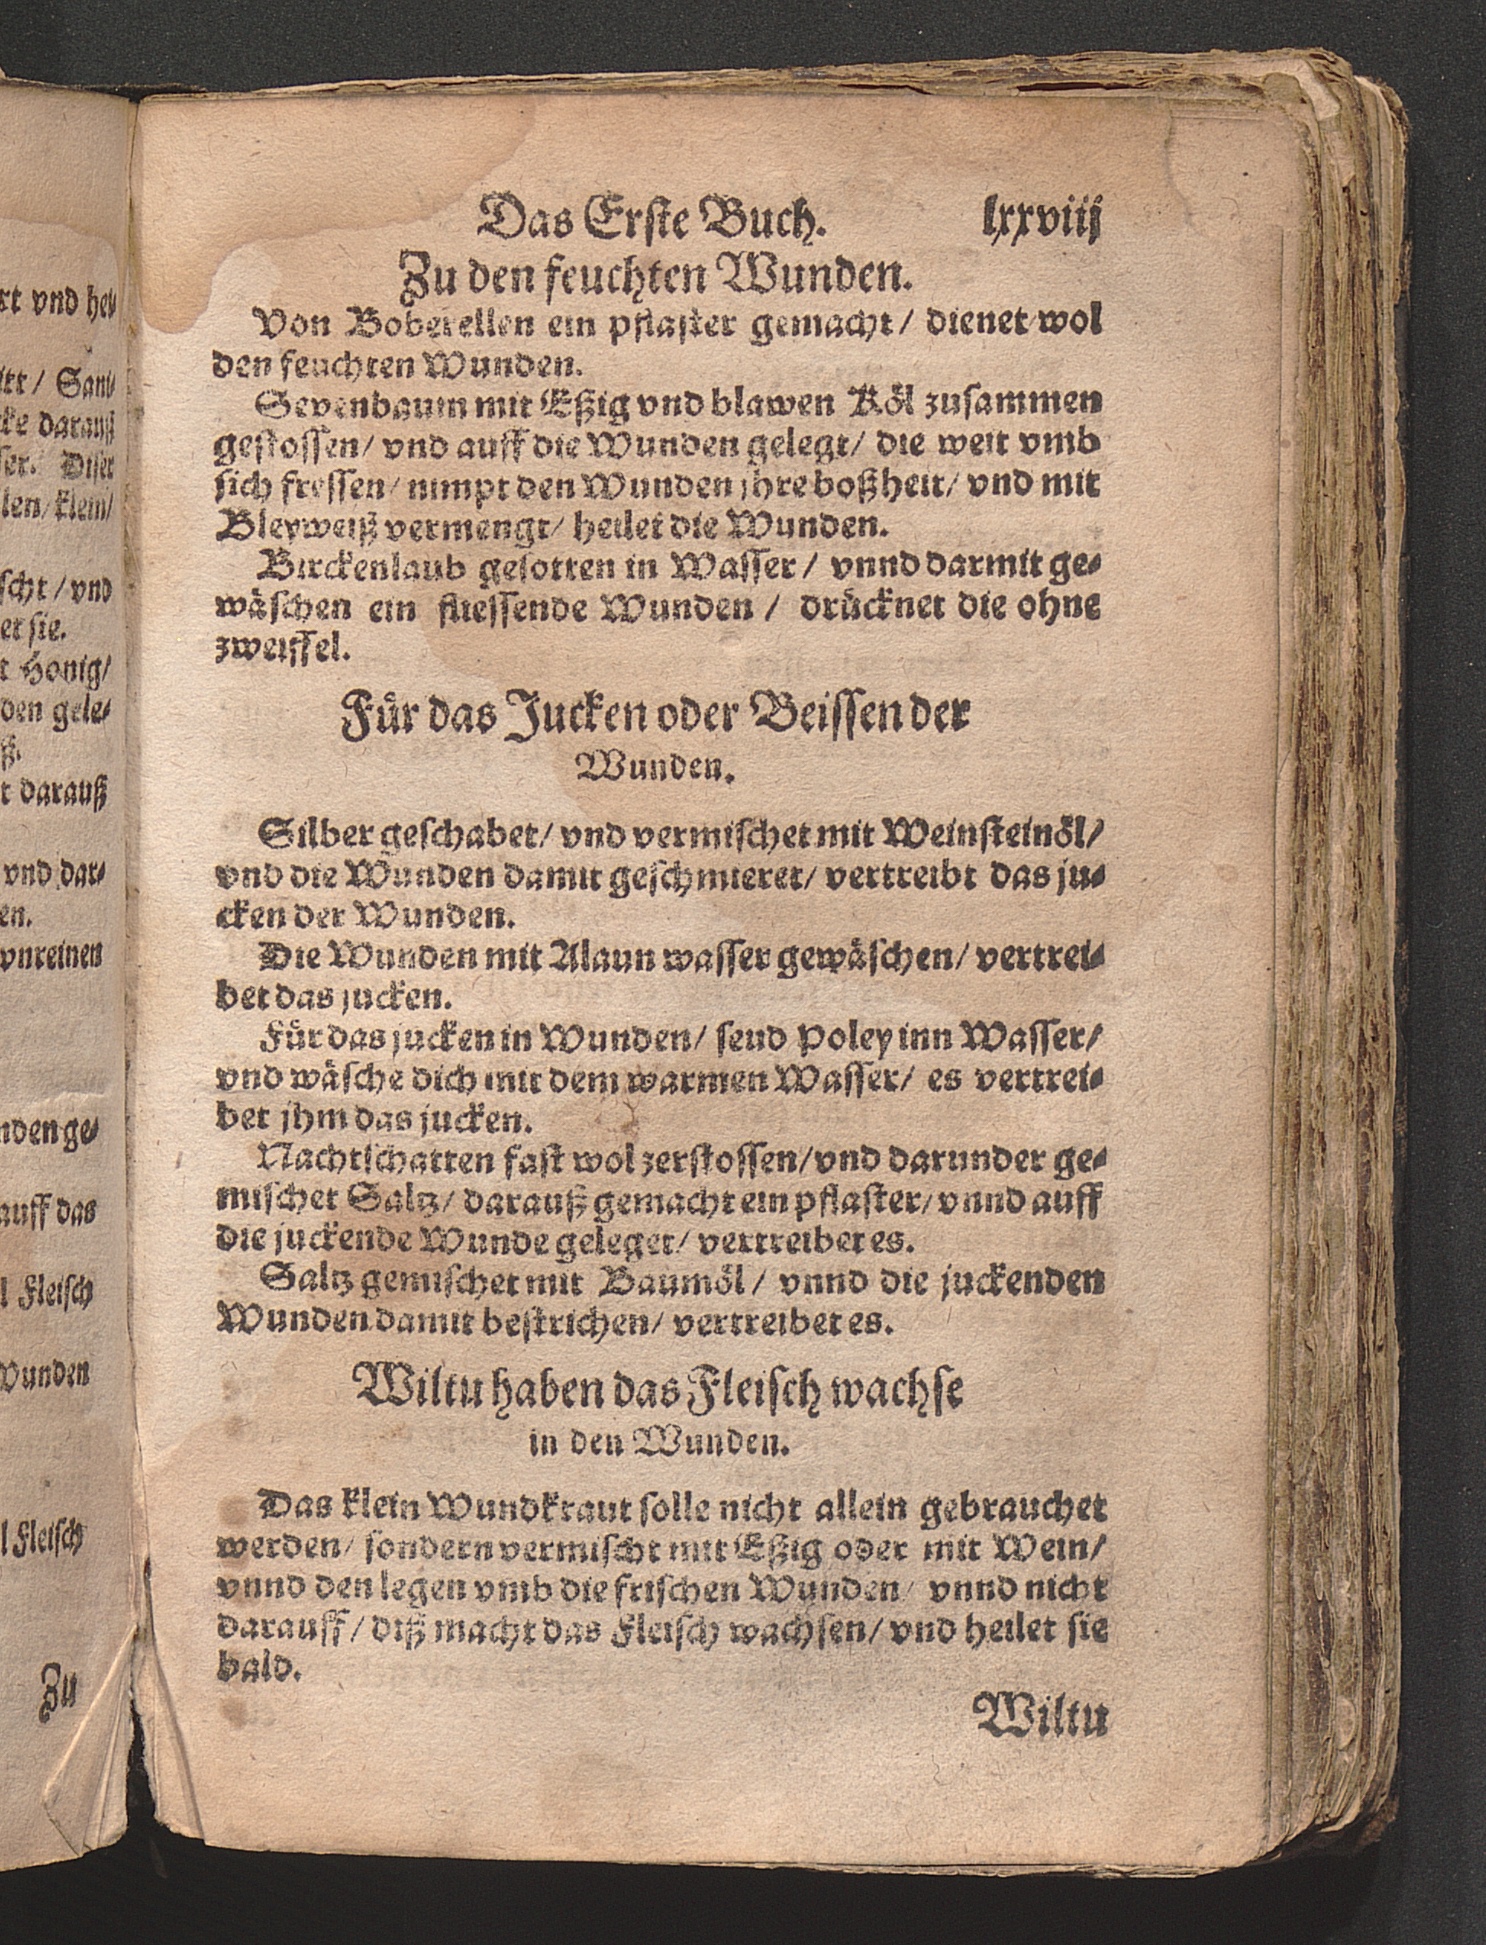 rt vnd hei/
itt / Sani/
cke darauß
ser. Diser
len/ klein/
scht / vnd
et sie.
t Honig/
den gele/
ß.
t darauß
vnd dar/
en.
vnreinen
nden ge/
auff das
l Fleisch
Wunden
l Fleisch
Zu
Das Erste Buch. lxxviij
Zu den feuchten Wunden.
Von Boberellen ein pflaster gemacht / dienet wol
den feuchten Wunden.
Sevenbaum mit Eßig vnd blawen Köl zusammen
gestossen / vnd auff die Wunden gelegt / die weit vmb
sich fressen / nimpt den Wunden jhre boßheit / vnd mit
Bleyweiß vermengt / heilet die Wunden.
Birckenlaub gesotten in Wasser / vnnd darmit ge⸗
wäschen ein fliessende Wunden / drücknet die ohne
zweiffel.
Für das Jucken oder Beissen der
Wunden.
Silber geschabet / vnd vermischet mit Weinsteinöl /
vnd die Wunden damit geschmieret / vertreibt das ju⸗
cken der Wunden.
Die Wunden mit Alaun wasser gewäschen / vertrei⸗
bet das jucken.
Für das jucken in Wunden / seud Poley inn Wasser /
vnd wäsche dich mit dem warmen Wasser / es vertrei⸗
bet jhm das jucken.
Nachtschatten fast wol zerstossen / vnd darunder ge⸗
mischet Saltz / darauß gemacht ein pflaster / vnnd auff
die juckende Wunde geleget / vertreibet es.
Saltz gemischet mit Baumöl / vnnd die juckenden
Wunden damit bestrichen / vertreibet es.
Wiltu haben das Fleisch wachse
in den Wunden.
Das klein Wundkraut solle nicht allein gebrauchet
werden / sondern vermischt mit Eßig oder mit Wein /
vnnd den legen vmb die frischen Wunden / vnnd nicht
darauff / diß macht das Fleisch wachsen / vnd heilet sie
bald.
Wiltu